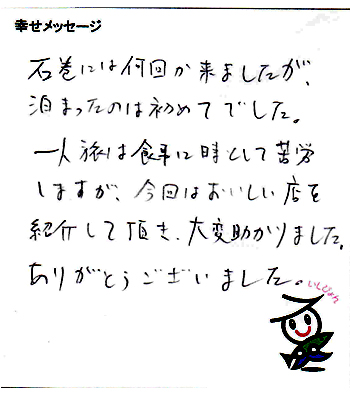 幸せメッセージ
石巻には何回か来ましたが、
泊まったのは初めてでした。
一人旅は食事に時として苦労
しますが、今回はおいしい店を
紹介して頂き、大変助かりました。
ありがとうございました。
いしぴょん